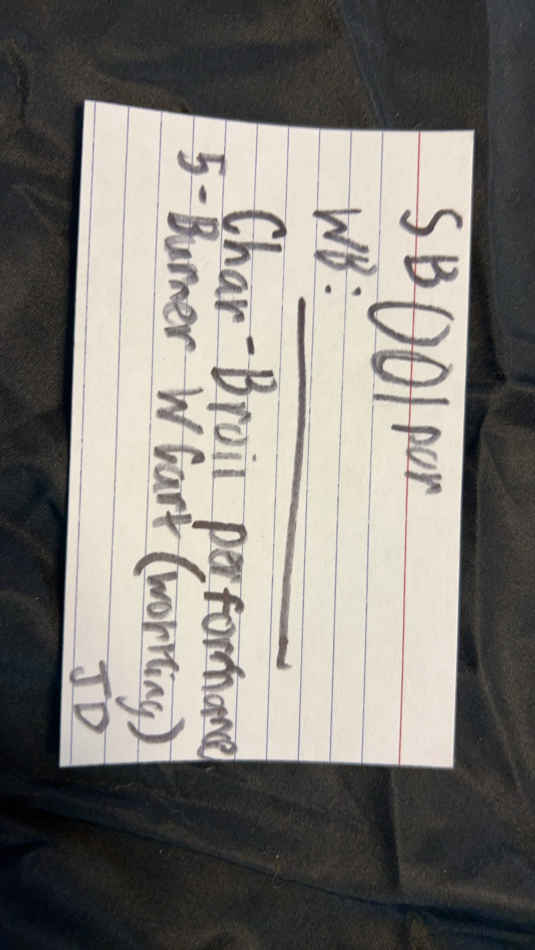 SB001 par
WB:
Char-Broil performane
5-Burner W Cart (working)
JD